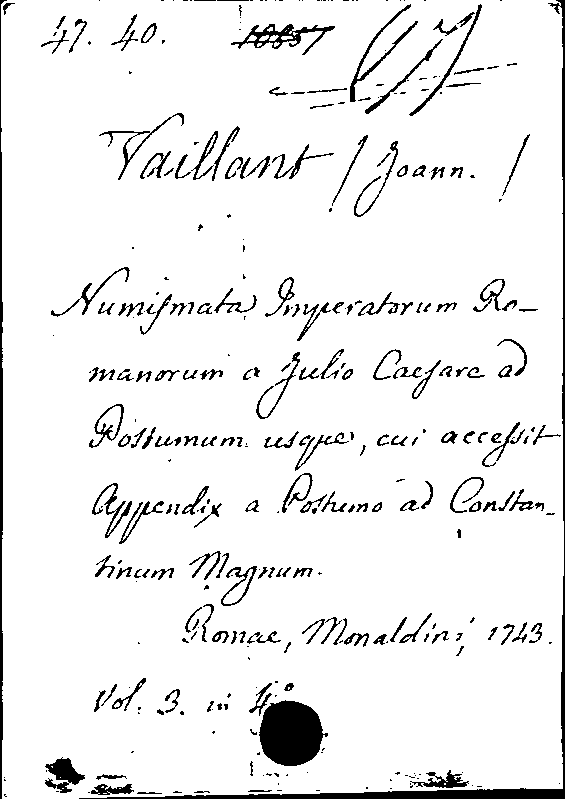 47. 40. 10857
Vaillant / Joann. /
Numiſmata Imperatorum Ro-
manorum a Julio Caeſare ad
Postumum usque, cui acceſsit
Appendix a Postumo ad Constan-
tinum Magnum.
Romae, Monaldini, 1743.
Vol. 3. in 4°